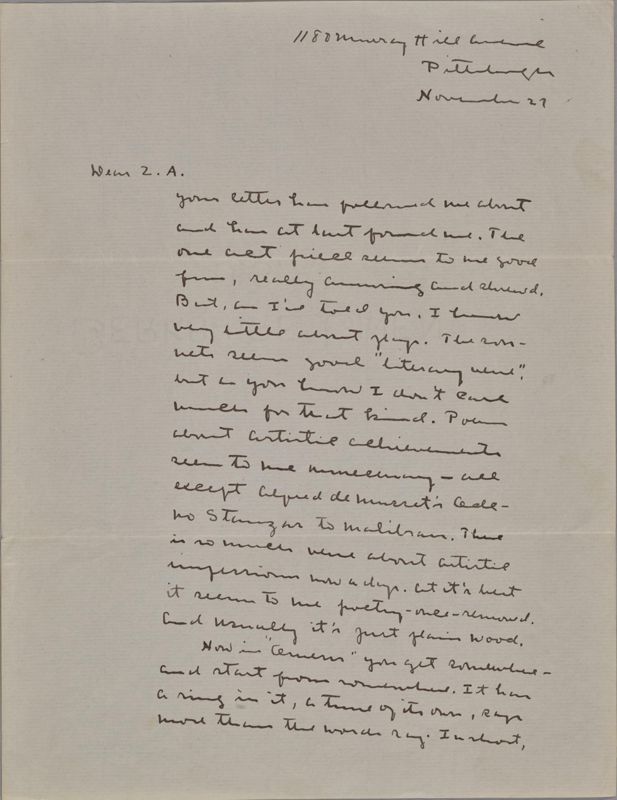 1180 Murray Hill Avenue
Pittsburgh
November 27
Dear Z. A.
your letter has followed me about
and has at last found me. The
one act piece seems to me good
fun, really amusing and shrewd.
But, as I've told you, I know
very little about plays. The son-
nets seem good "literary verse",
but as you know I don't care
much for that kind. Poems
about artistic achievements
seem to me unnecessary - all
except Alfred de Musset's
Stanzas to Malibran. There
is so much verse about artistic
impressions now a days. At it's best
it seems to me poetry-once-removed.
And usually it's just plain wood.
Now in "" you get somewhere -
and start from somewhere. It has
a ring in it, a tune of its own, says
more than the words say. In short,